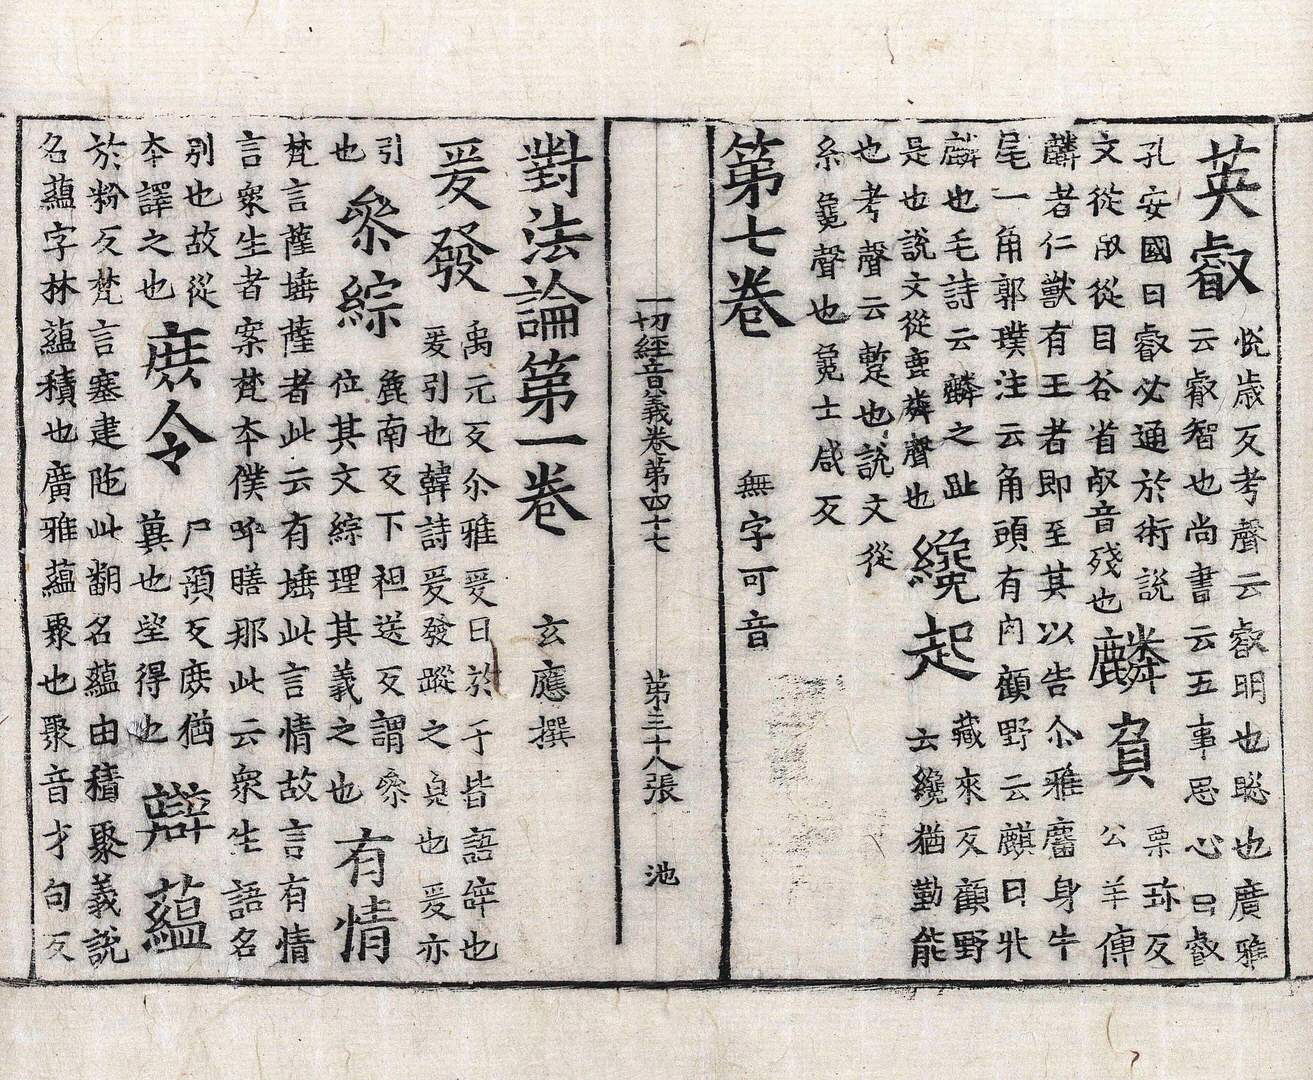 英叡
悅歲反考聲云叡明也聡也廣雅
云叡智也尚書云五事思心曰叡
孔安國曰叡必通於術說
文從㕡從目谷省㕡音殘也
麟負
栗珎反
公羊傳
麟者仁獸有王者即至其以告尒雅麕身牛
尾一角郭璞注云角頭有肉顧野云麒曰牝
麟也毛詩云麟之趾
是也說文從鹿粦聲也
纔起
藏來反顧野
云纔猶勤能
也考聲云蹔也說文從
糸毚聲也毚士咸反
第七卷 無字可音
一切經音義卷第四十七 第三十八張 池
對法論第一卷 玄應撰
爰發
禹元反尒雅爰曰於于皆語辝也
爰引也韓詩爰發蹤之皃也爰亦
引
也
叅綜
麁南反下祖送反謂叅
位其文綜理其義之也
有情
梵言薩埵薩者此云有埵此言情故言有情
言衆生者案梵夲僕呼膳那此云衆生語名
別也故從
夲譯之也
庶令
尸預反庶猶
冀也望得也
辯蘊
於粉反梵言塞建陁此翻名蘊由積聚義說
名蘊字林蘊積也廣雅蘊聚也聚音才句反